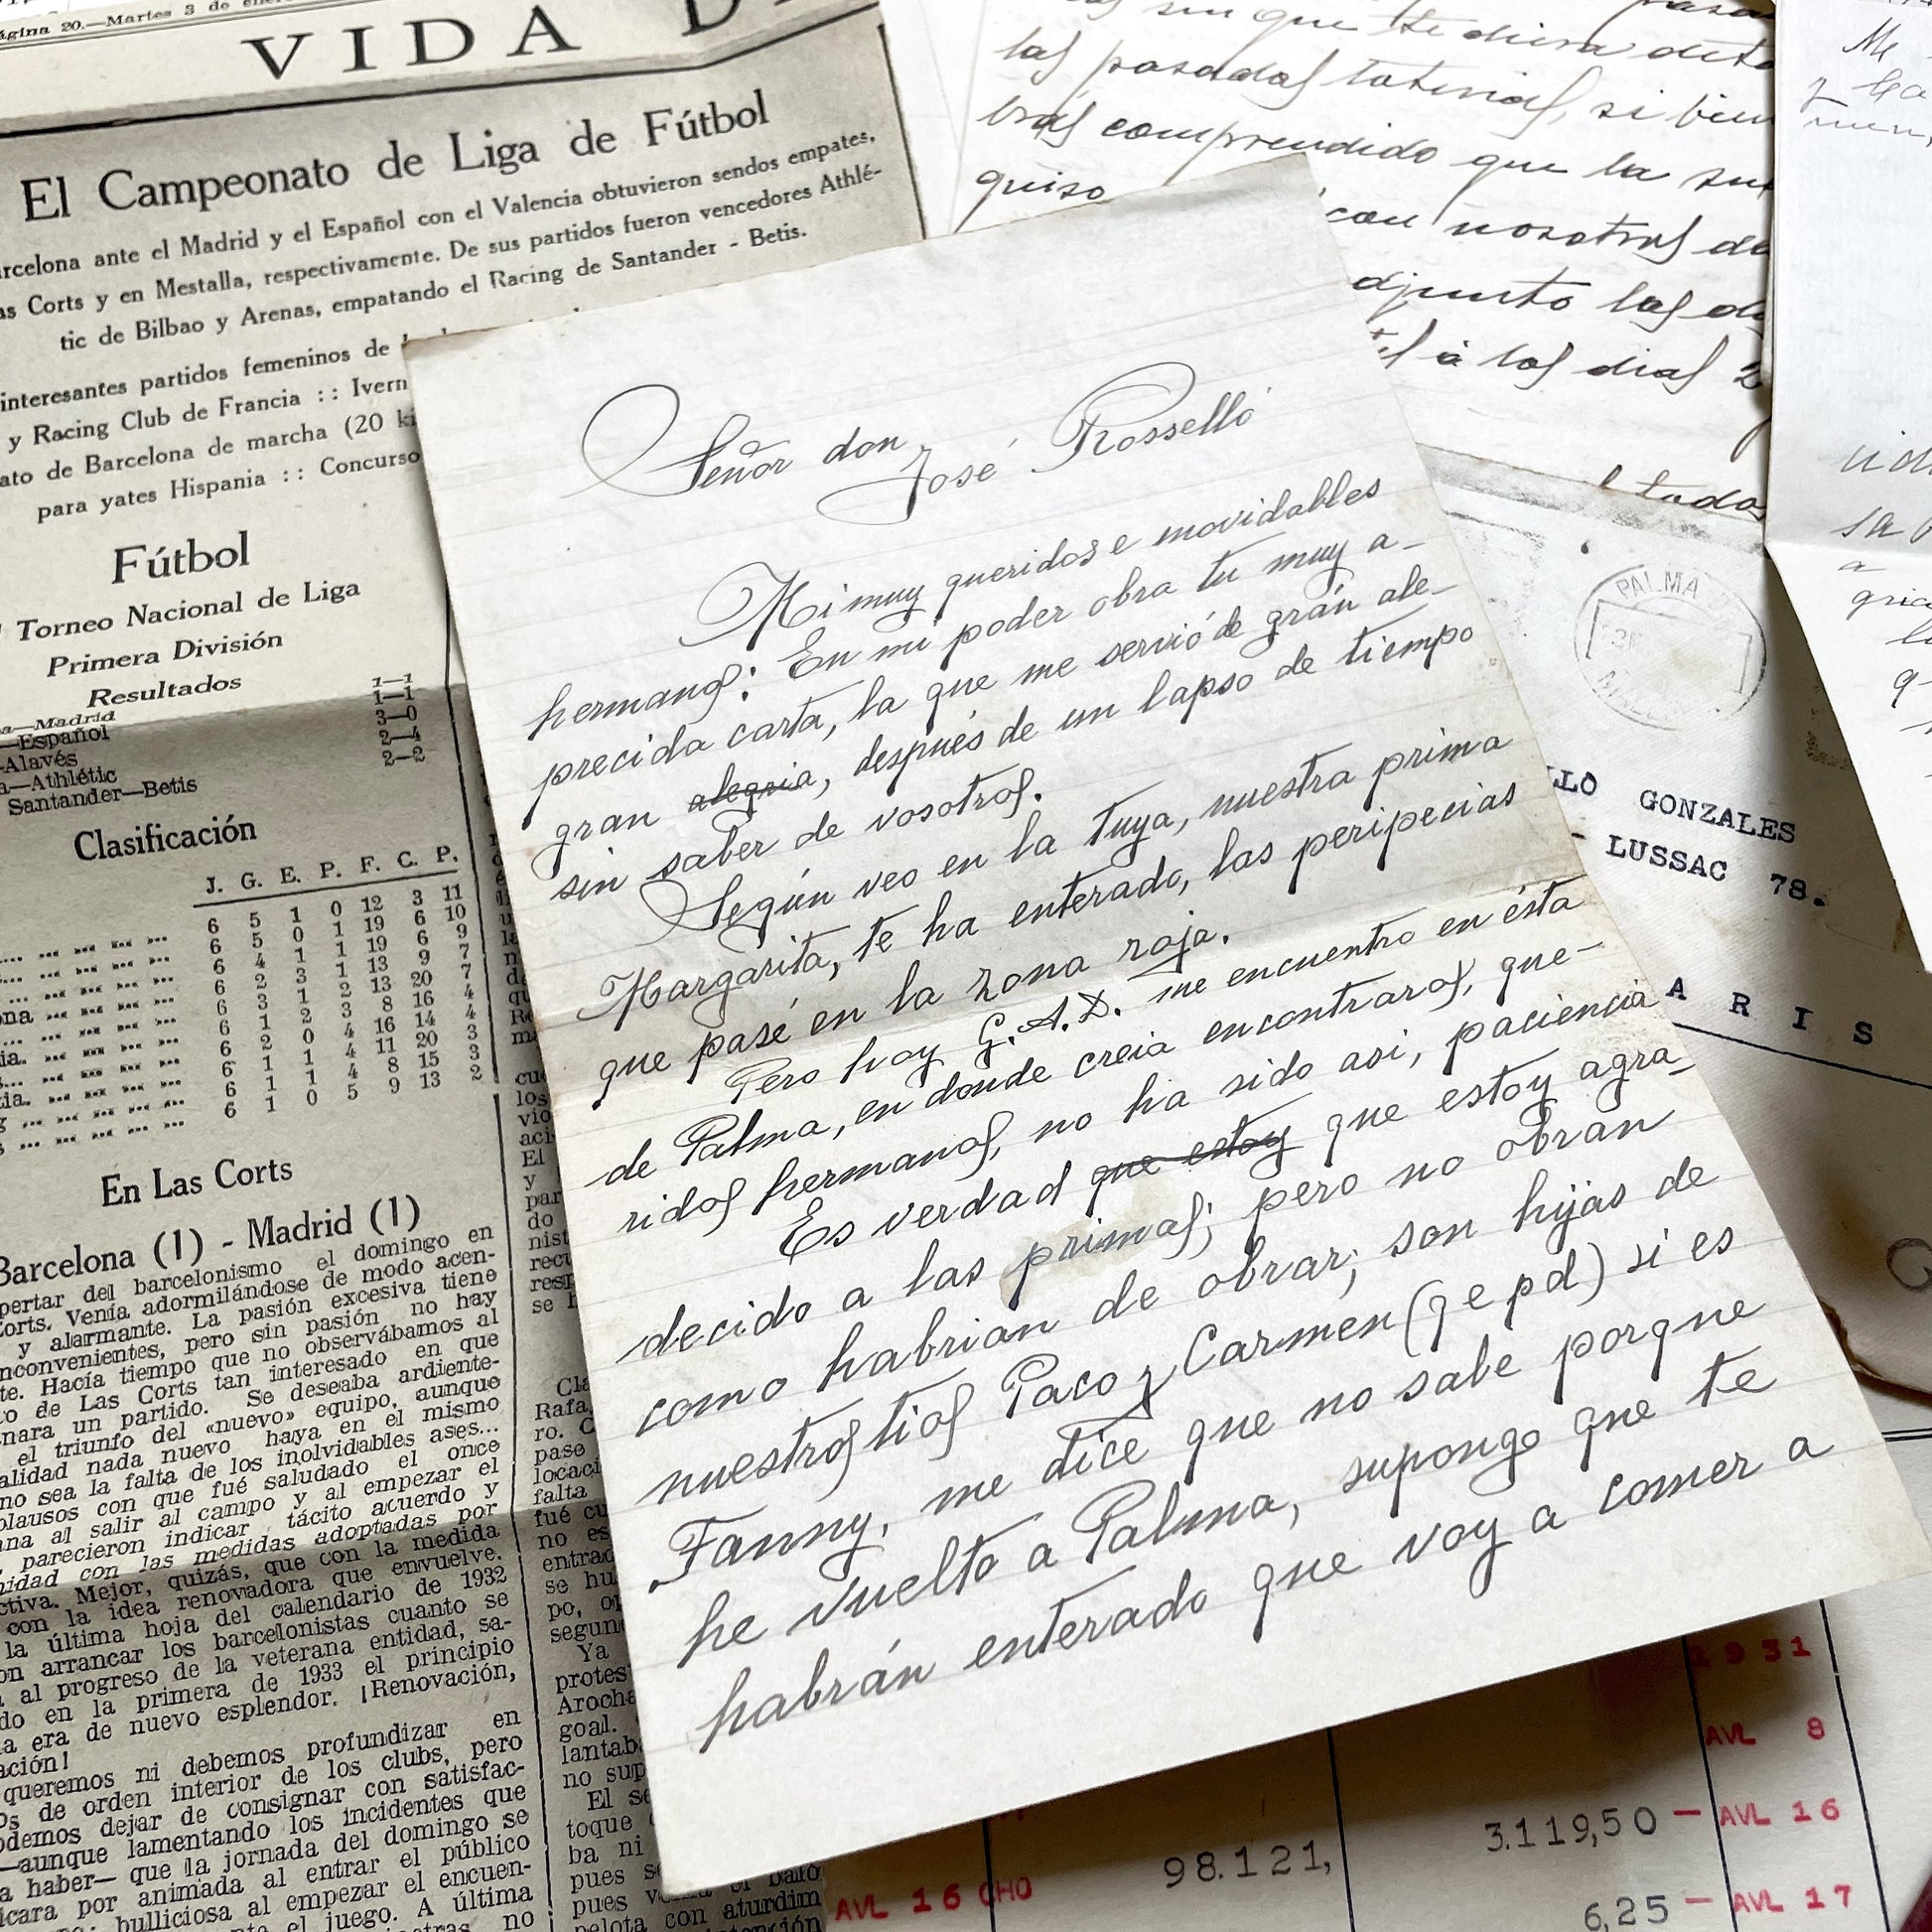 Página 20.—Martes 3 de
VIDA D
El Campeonato de Liga de Fútbol
rcelona ante el Madrid y el Español con el Valencia obtuvieron sendos empates,
as Corts y en Mestalla, respectivamente. De sus partidos fueron vencedores Athlé-
tic de Bilbao y Arenas, empatando el Racing de Santander - Betis.
interesantes partidos femeninos de
y Racing Club de Francia :: Ivern
ato de Barcelona de marcha (20 ki
para yates Hispania :: Concurso
Fútbol
Torneo Nacional de Liga
Primera División
Resultados
a—Madrid 1—1
—Español 1—1
—Alavés 3—0
a—Athlétic 2—4
Santander—Betis 2—2
Clasificación
J. G. E. P. F. C. P.
6 5 1 0 12 3 11
6 5 0 1 19 6 10
6 4 1 1 19 6 9
6 2 3 1 13 9 7
ona 6 3 1 2 13 20 7
6 1 2 3 8 16 4
ia. 6 2 0 4 16 14 4
6 1 1 4 11 20 3
tia. 6 1 1 4 8 15 3
6 1 0 5 9 13 2
En Las Corts
Barcelona (1) - Madrid (1)
pertar del barcelonismo el domingo en
Corts. Venía adormilándose de modo acen-
y alarmante. La pasión excesiva tiene
nconvenientes, pero sin pasión no hay
te. Hacía tiempo que no observábamos al
o de Las Corts tan interesado en que
nara un partido. Se deseaba ardiente-
el triunfo del «nuevo» equipo, aunque
alidad nada nuevo haya en el mismo
no sea la falta de los inolvidables ases...
plausos con que fué saludado el once
ana al salir al campo y al empezar el
parecieron indicar tácito acuerdo y
nidad con las medidas adoptadas por
ctiva. Mejor, quizás, que con la medida
con la idea renovadora que envuelve.
la última hoja del calendario de 1932
on arrancar los barcelonistas cuanto se
a al progreso de la veterana entidad, sa-
do en la primera de 1933 el principio
a era de nuevo esplendor. ¡Renovación,
ación!
queremos ni debemos profundizar en
os de orden interior de los clubs, pero
odemos dejar de consignar con satisfac-
—aunque lamentando los incidentes que
a haber— que la jornada del domingo se
icara por animada al entrar el público
bulliciosa al empezar el encuen-
el juego. A última
no
Cla
Rafa,
ro. C
pase
locaci
falta
fué cu
no es
entrad
se hu
po, op
segun
Ya
protes
Arocha
goal.
lantab
no sup
El se
toque
ba ni
pues s
pues v
pelota con aturdim
Señor don
José Rosselló
Mi muy queridos e inovidables
hermanos: En mi poder obra tu muy a-
precida carta, la que me servió de grán ale-
gran alegria, después de un lapso de tiempo
sin saber de vosotros.
Según veo en la tuya, nuestra prima
Margarita, te ha enterado, las peripecias
que pasé en la zona roja.
Pero hoy G.A.D. me encuentro en ésta
de Palma, en donde creia encontraros, que-
ridos hermanos, no ha sido asi, paciencia
Es verdad que estoy que estoy agra-
decido a las primas; pero no obran
como habrian de obrar; son hijas de
nuestros tios Paco y Carmen (q e p d) si es
Fanny, me dice que no sabe porque
he vuelto a Palma, supongo que te
habrán enterado que voy a comer a
sin que te diera
las pasadas
comprendido que la
quiso
con nosotros de
djunto las
à los dias 2
todos
Me
PALMA
LLO GONZALES
- LUSSAC 78.
A R I S
1931
AVL 8
3.119,50 — AVL 16
98.121,
6,25 — AVL 17
AVL 16 CHO